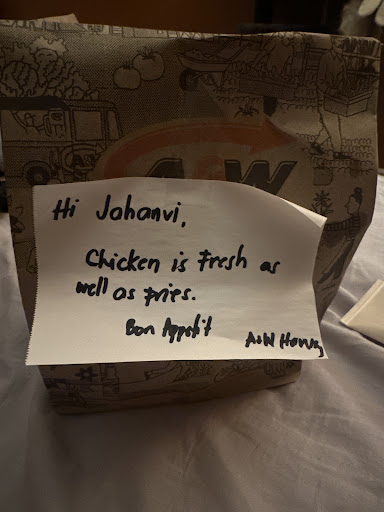 A&W
Hi Jahanvi,
Chicken is Fresh as
well as fries.
Bon Appetit
A&W Harvey